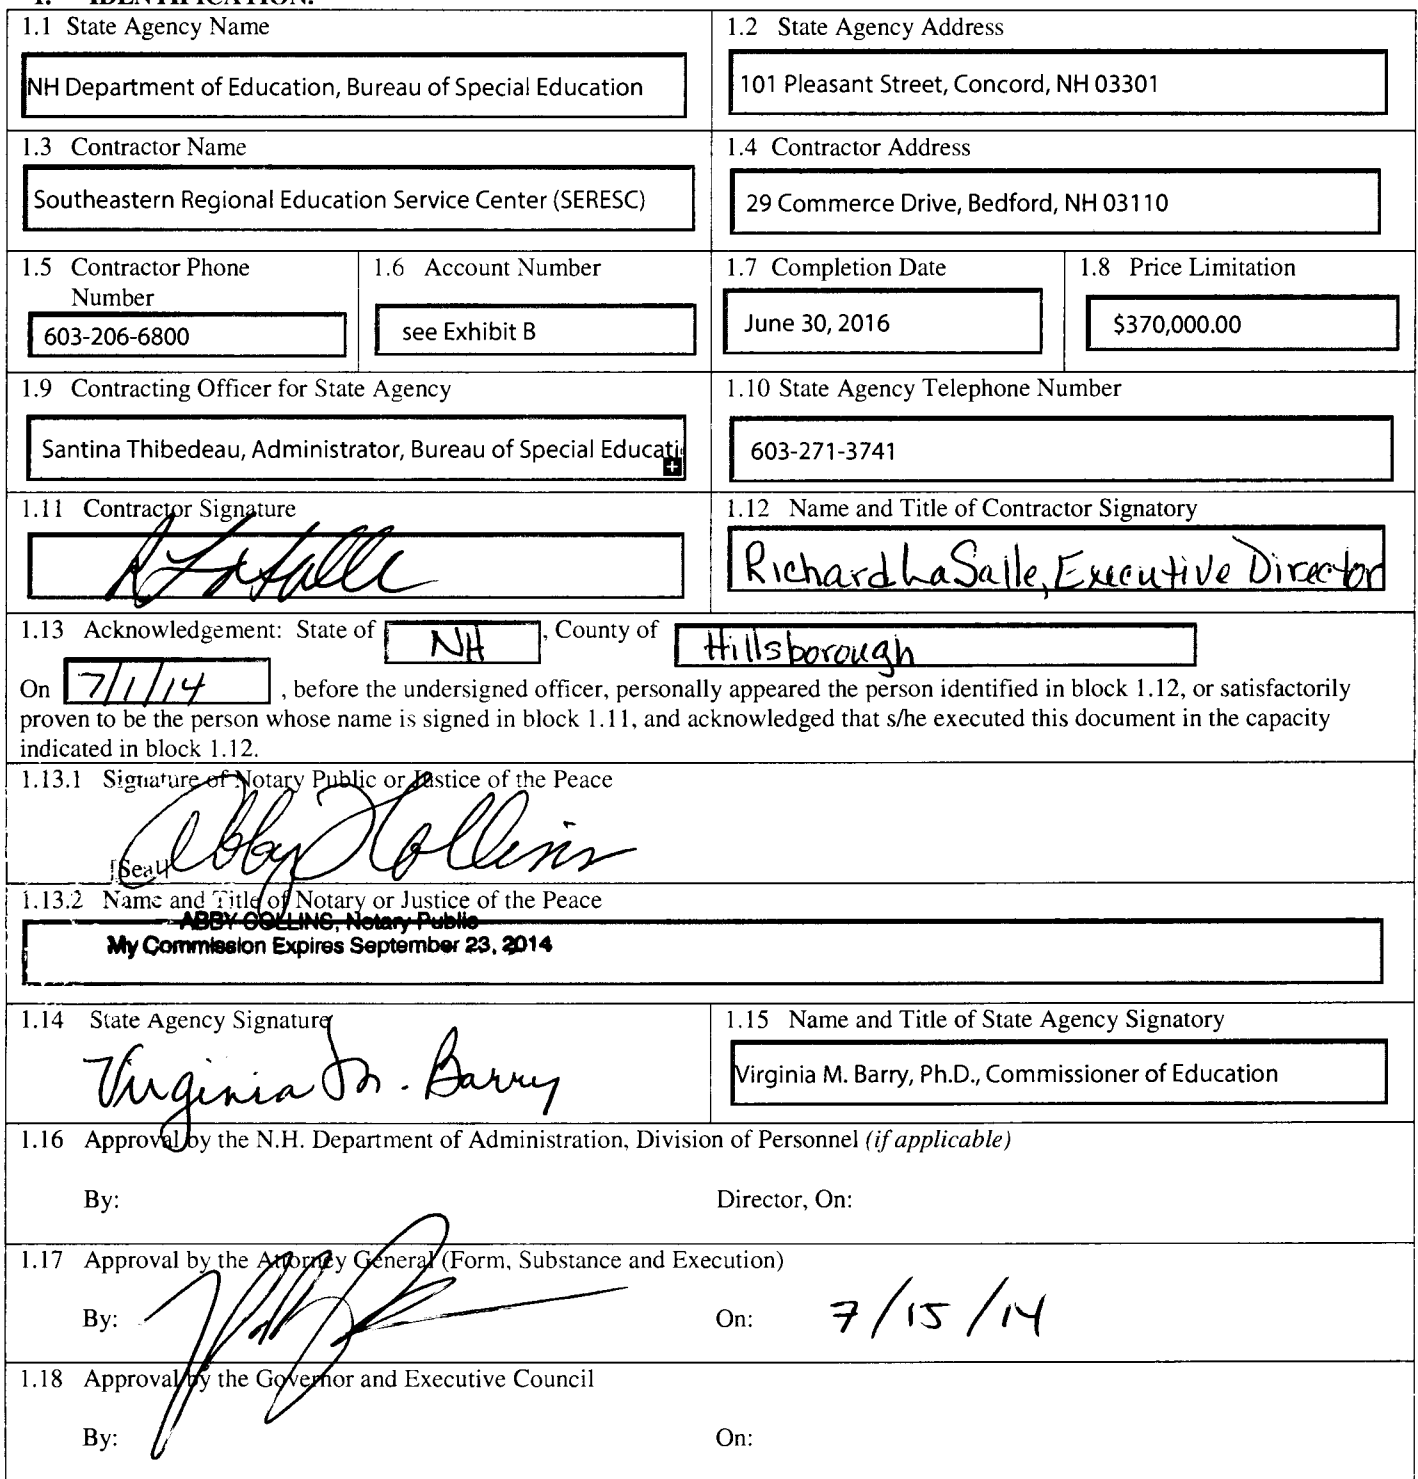 1. IDENTIFICATION.
1.1 State Agency Name
NH Department of Education, Bureau of Special Education
1.2 State Agency Address
101 Pleasant Street, Concord, NH 03301
1.3 Contractor Name
Southeastern Regional Education Service Center (SERESC)
1.4 Contractor Address
29 Commerce Drive, Bedford, NH 03110
1.5 Contractor Phone
Number
603-206-6800
1.6 Account Number
see Exhibit B
1.7 Completion Date
June 30, 2016
1.8 Price Limitation
$370,000.00
1.9 Contracting Officer for State Agency
Santina Thibedeau, Administrator, Bureau of Special Educati
1.10 State Agency Telephone Number
603-271-3741
1.11 Contractor Signature
R LaSalle
1.12 Name and Title of Contractor Signatory
Richard LaSalle, Executive Director
1.13 Acknowledgement: State of NH, County of Hillsborough
On 7/1/14, before the undersigned officer, personally appeared the person identified in block 1.12, or satisfactorily
proven to be the person whose name is signed in block 1.11, and acknowledged that s/he executed this document in the capacity
indicated in block 1.12.
1.13.1 Signature of Notary Public or Justice of the Peace
Abby Collins
[Seal]
1.13.2 Name and Title of Notary or Justice of the Peace
ABBY COLLINS, Notary Public
My Commission Expires September 23, 2014
1.14 State Agency Signature
Virginia M. Barry
1.15 Name and Title of State Agency Signatory
Virginia M. Barry, Ph.D., Commissioner of Education
1.16 Approval by the N.H. Department of Administration, Division of Personnel (if applicable)
By: Director, On:
1.17 Approval by the Attorney General (Form, Substance and Execution)
By: On: 7/15/14
1.18 Approval by the Governor and Executive Council
By: On: